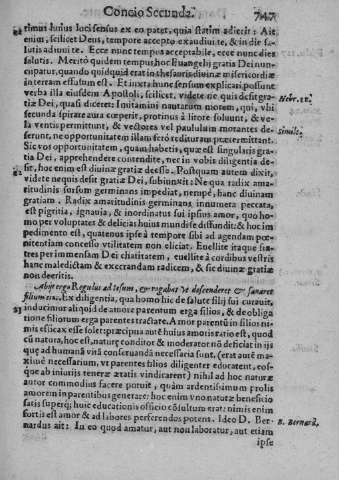 Concio Secunda. 747
timus huius loci sensus ex eo patet, quia statim adiecit: Ait
enim, scilicet Deus, tempore accepto exaudiui te, & in die sa-
lutis adiuui te. Ecce nunc tempus acceptabile, ecce nunc dies
salutis. Meritò quidem tempus hoc Euangelij gratia Dei nun-
cupatur, quando quidquid erat in thesauris diuinæ misericordiæ
in terram effusum est. Et iuxta hunc sensum explicari possunt
verba illa eiusdem Apostoli, scilicet, videte ne quis desit gra-
tiæ Dei, quasi diceret: Imitamini nautarum morem, qui, vbi
secunda spirare aura cœperit, protinus à litore soluunt, & ve-
la ventis permittunt, & vectores vel paululum morantes de-
serunt, ne opportunitatem illam serò redituram prætermittant.
Sic vos opportunitatem, quam habetis, quæ est singularis gra-
tia Dei, apprehendere contendite, nec in vobis diligentia de-
sit, hoc enim est diuinæ gratiæ deesse. Postquam autem dixit,
videte nequis desit gratiæ Dei, subiunxit: Ne qua radix ama-
ritudinis sursum germinans impediat, nempe, hanc diuinam
gratiam. Radix amaritudinis germinans, innumera peccata,
est pigritia, ignauia, & inordinatus sui ipsius amor, quo ho-
mo per voluptates & delicias huius mundi se diffundit: & hoc im
pedimento est, quatenus ipse à tempore sibi ad agendam pœ-
nitentiam concesso vtilitatem non eliciat. Euellite itaque fra-
tres per immensam Dei charitatem, euellite à cordibus vestris
hanc maledictam & execrandam radicem, & sic diuinæ gratiæ
non deeritis.
Abijt ergo Regulus ad Iesum, & rogabat vt descenderet & sanaret
filium eius. Ex diligentia, qua homo hic de salute filij sui curauit,
inducimur aliquid de amore parentum erga filios, & de obliga
tione filiorum erga parentes tractare. Amor parentum filios ni-
mis efficax esse solet: præcipua autē huius amoris ratio est, quod
cū natura, hoc est, naturæ conditor & moderator nō deficiat in ijs
quæ ad humanā vitā conseruandā necessaria sunt. (erat autē ma-
ximè necessarium, vt parentes filios diligenter educatent, eos-
que ab iniurijs teneræ ætatis vindicarent) nihil ad hoc naturæ
autor commodius facere potuit, quàm ardentissimum prolis
amorem in parentibus generare: hoc enim vno naturæ beneficio
satis superq; huic educationis officio cōsultum erat: nimis enim
fortis est amor & ad labores perferendos potens. Ideo D. Ber-
nardus ait: In eo quod amatur, aut non laboratur, aut etiam
ipse
Hebr. 12.
Simile.
B. Bernard.